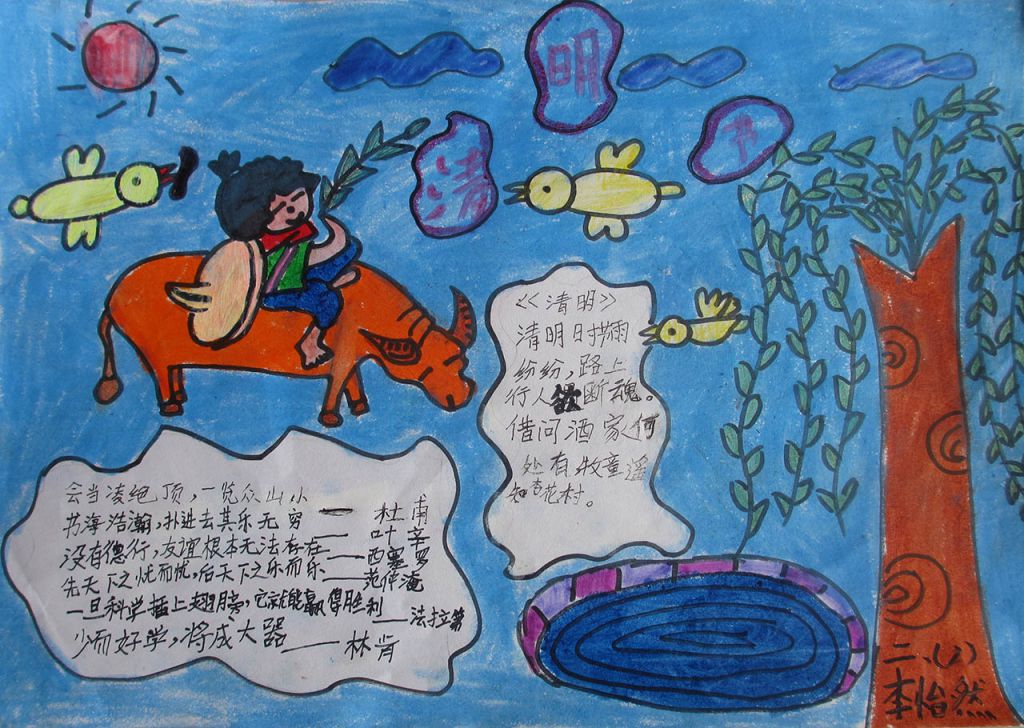 清
明
节
<<清明>
清明时节雨
纷纷,路上
行人欲断魂。
借问酒家何
处有牧童遥
知杏花村。
会当凌绝顶,一览众山小
书海浩瀚,扑进去其乐无穷——杜甫
没有德行,友谊根本无法存在——叶辛
先天下之忧而忧,后天下之乐而乐——西塞罗
一旦科学插上翅膀,它就能赢得胜利——范仲淹
少而好学,将成大器——法拉第
林肯
二、(2)
李怡然